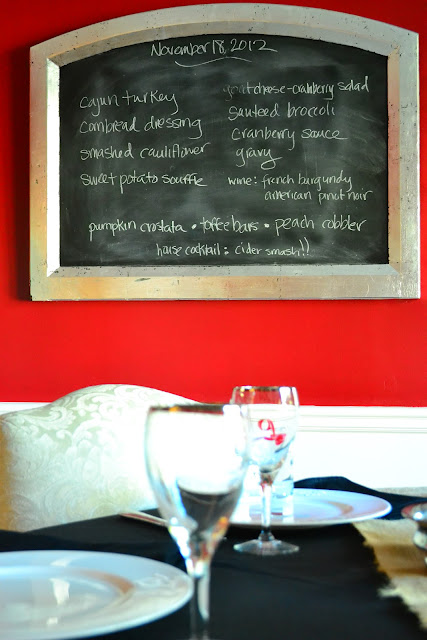 November 18, 2012
cajun turkey
cornbread dressing
smashed cauliflower
sweet potato souffle
goat cheese-cranberry salad
sauteed broccoli
cranberry sauce
gravy
wine: french burgundy
american pinot noir
pumpkin crostata • toffee bars • peach cobbler
house cocktail: cider smash!!